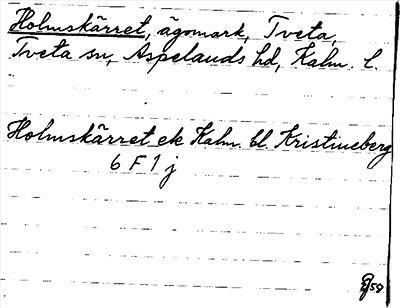 Holmskärret, ägomark, Tveta,
Tveta sn, Aspelands hd, Kalm. l.
Holmskärret ek Kalm. bl. Kristineberg
6 F 1 j
59